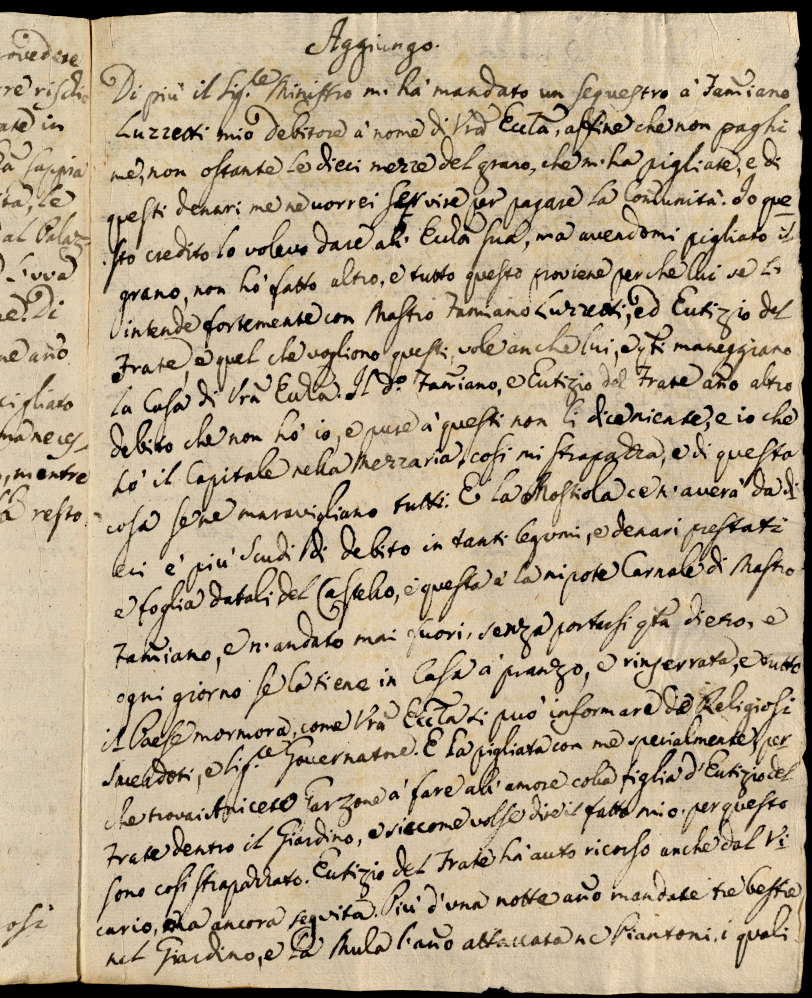 rovedere
re rischio
ate in
da sappia
ità, le
al Palaz-
Livva
ne. Di
ne año
cigliato
mane es-
, mentre
là resto
osi
Aggiungo.
Di più il Sig.le Ministro m. hà mandato un sequestro à Damiano
Luzzetti mio debitore à nome di Vrã Ecctã, affine che non paghi
me, non ostante le dieci mezze del grano, che m. ha pigliate, e di
questi denari me ne vorrei servire per pagare la Comunità. Io que-
sto credito lo volevo dare all' Ecctã sua, ma avendomi pigliato il
grano, non hò fatto altro, e tutto questo proviene perche lui se l.
intende fortemente con Mastro Damiano Luzzetti, ed Eutizio del
Frate, e quel che vogliono questi, vole anche lui, e qti maneggiano
la Casa di Vrã Ecctã. Il do. Damiano, e Eutizio del Frate año altro
debito che non hò io, e pure à questi non li dice niente, e io che
hò il Capitale nella Mezzaria, così mi strapazza, e di questa
cosa se ne maravigliano tutti. E la Mostiola ce n. averà da di
eci e più Scudi di debito in tanti legumi, e denari prestati
e foglia datali del Castello, e questa è la nipote Carnale di Mastro
Damiano, e n. andato mai fuori, senza portarsi qta dietro, e
ogni giorno se la tiene in Casa à pranzo, e rinserrata, e tutto
il Paese mormora, come Vrã Ecctã si può informare da Religiosi
Sacerdoti, e Sig.le Governatore. E la pigliata con me specialmente, per
che trovai Aniceto Garzone à fare all' amore colla figlia d' Eutizio del
Frate dentro il Giardino, e siccome volse dire il fatto mio. per questo
sono così strapazzato. Eutizio del Frate hà auto ricorso anche dal Vi
cario, ma ancora seguita. Più d' una notte año mandate trè bestie
nel Giardino, e la Mula l' año attaccata ne Piantoni, i quali